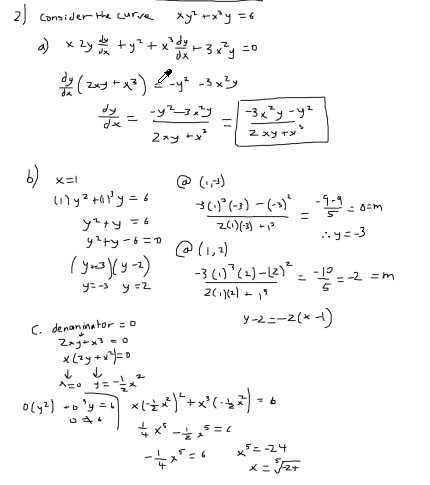 2) Consider the curve xy² + x³y = 6
a) x 2y dy/dx + y² + x³ dy/dx + 3x²y = 0
dy/dx (2xy + x³) = -y² - 3x²y
dy/dx = (-y² - 3x²y)/(2xy + x³) = (-3x²y - y²)/(2xy + x³)
b) x = 1
(1) y² + (1)³ y = 6
y² + y = 6
y² + y - 6 = 0
(y+3)(y-2)
y = -3 y = 2
@ (1,-3)
(-3(1)²(-3) - (-3)²)/(2(1)(-3) + 1³) = (-9-9)/5 = 0 = m
∴ y = -3
@ (1,2)
(-3(1)²(2) - (2)²)/(2(1)(2) + 1³) = -10/5 = -2 = m
y-2 = -2(x-1)
C. denominator = 0
2xy + x³ = 0
x(2y + x²) = 0
↓ ↓
x = 0 y = -1/2 x²
0(y²) + 0³y = 6
0 ≠ 6
x(-1/2 x²)² + x³(-1/2 x²) = 6
1/4 x⁵ - 1/2 x⁵ = 6
-1/4 x⁵ = 6
x⁵ = -24
x = ⁵√-24